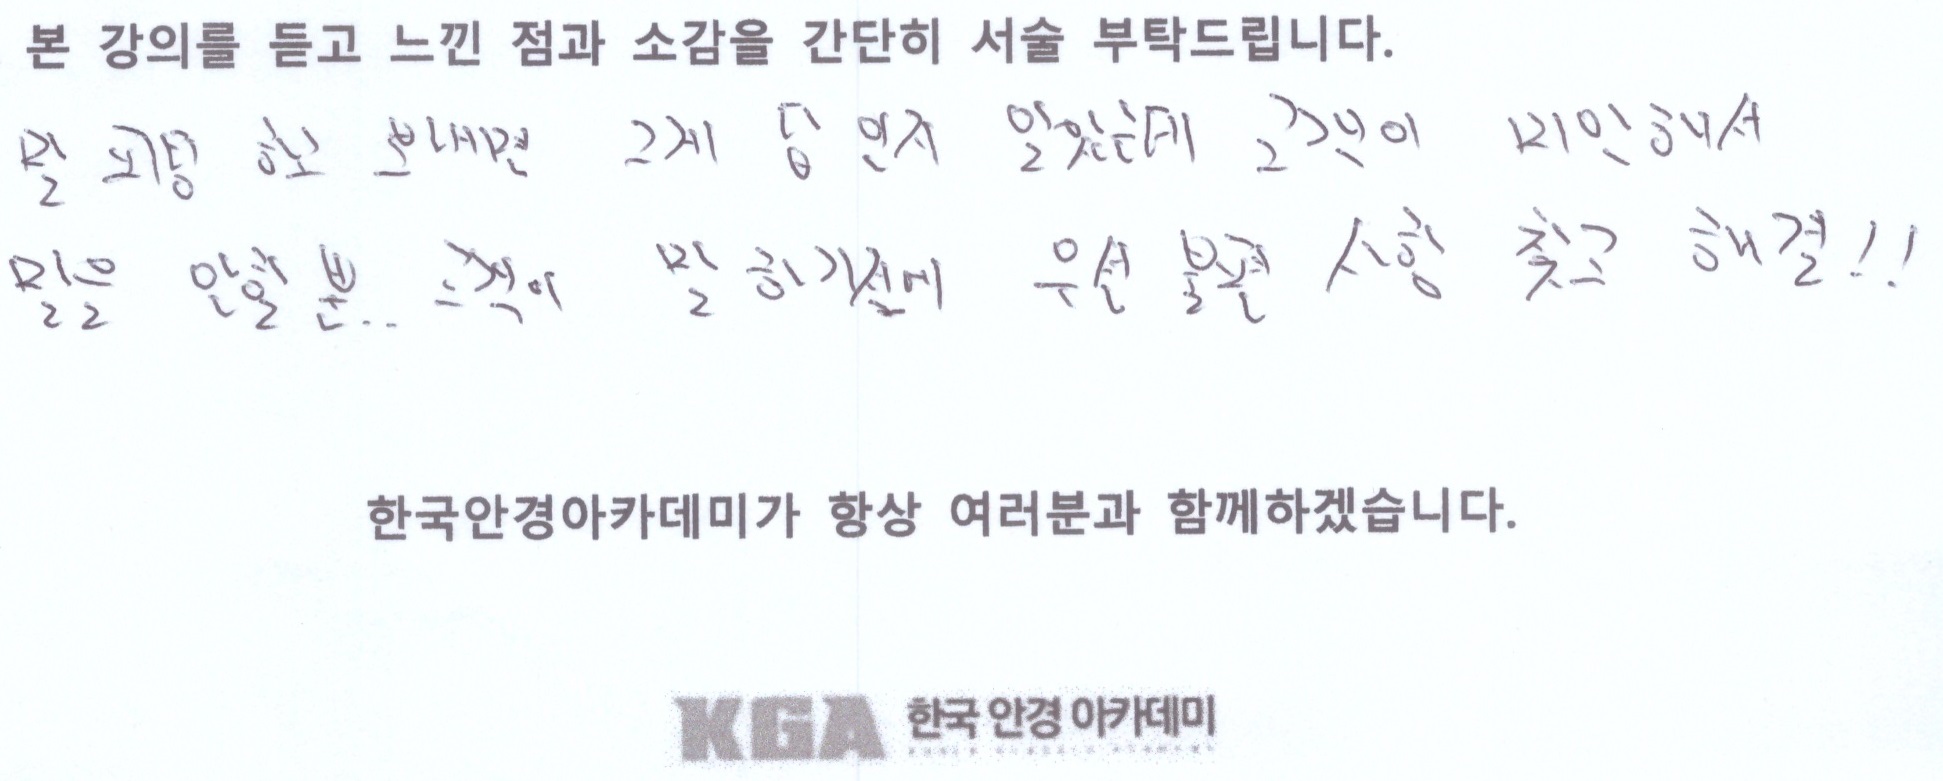 본 강의를 듣고 느낀 점과 소감을 간단히 서술 부탁드립니다.
말 피팅 하고 보내면 그게 답 인지 알았는데 고객이 미안해서
말을 안할 뿐.. 고객이 말 하기전에 우선 불편 사항 찾고 해결!!
한국안경아카데미가 항상 여러분과 함께하겠습니다.
KGA 한국 안경 아카데미